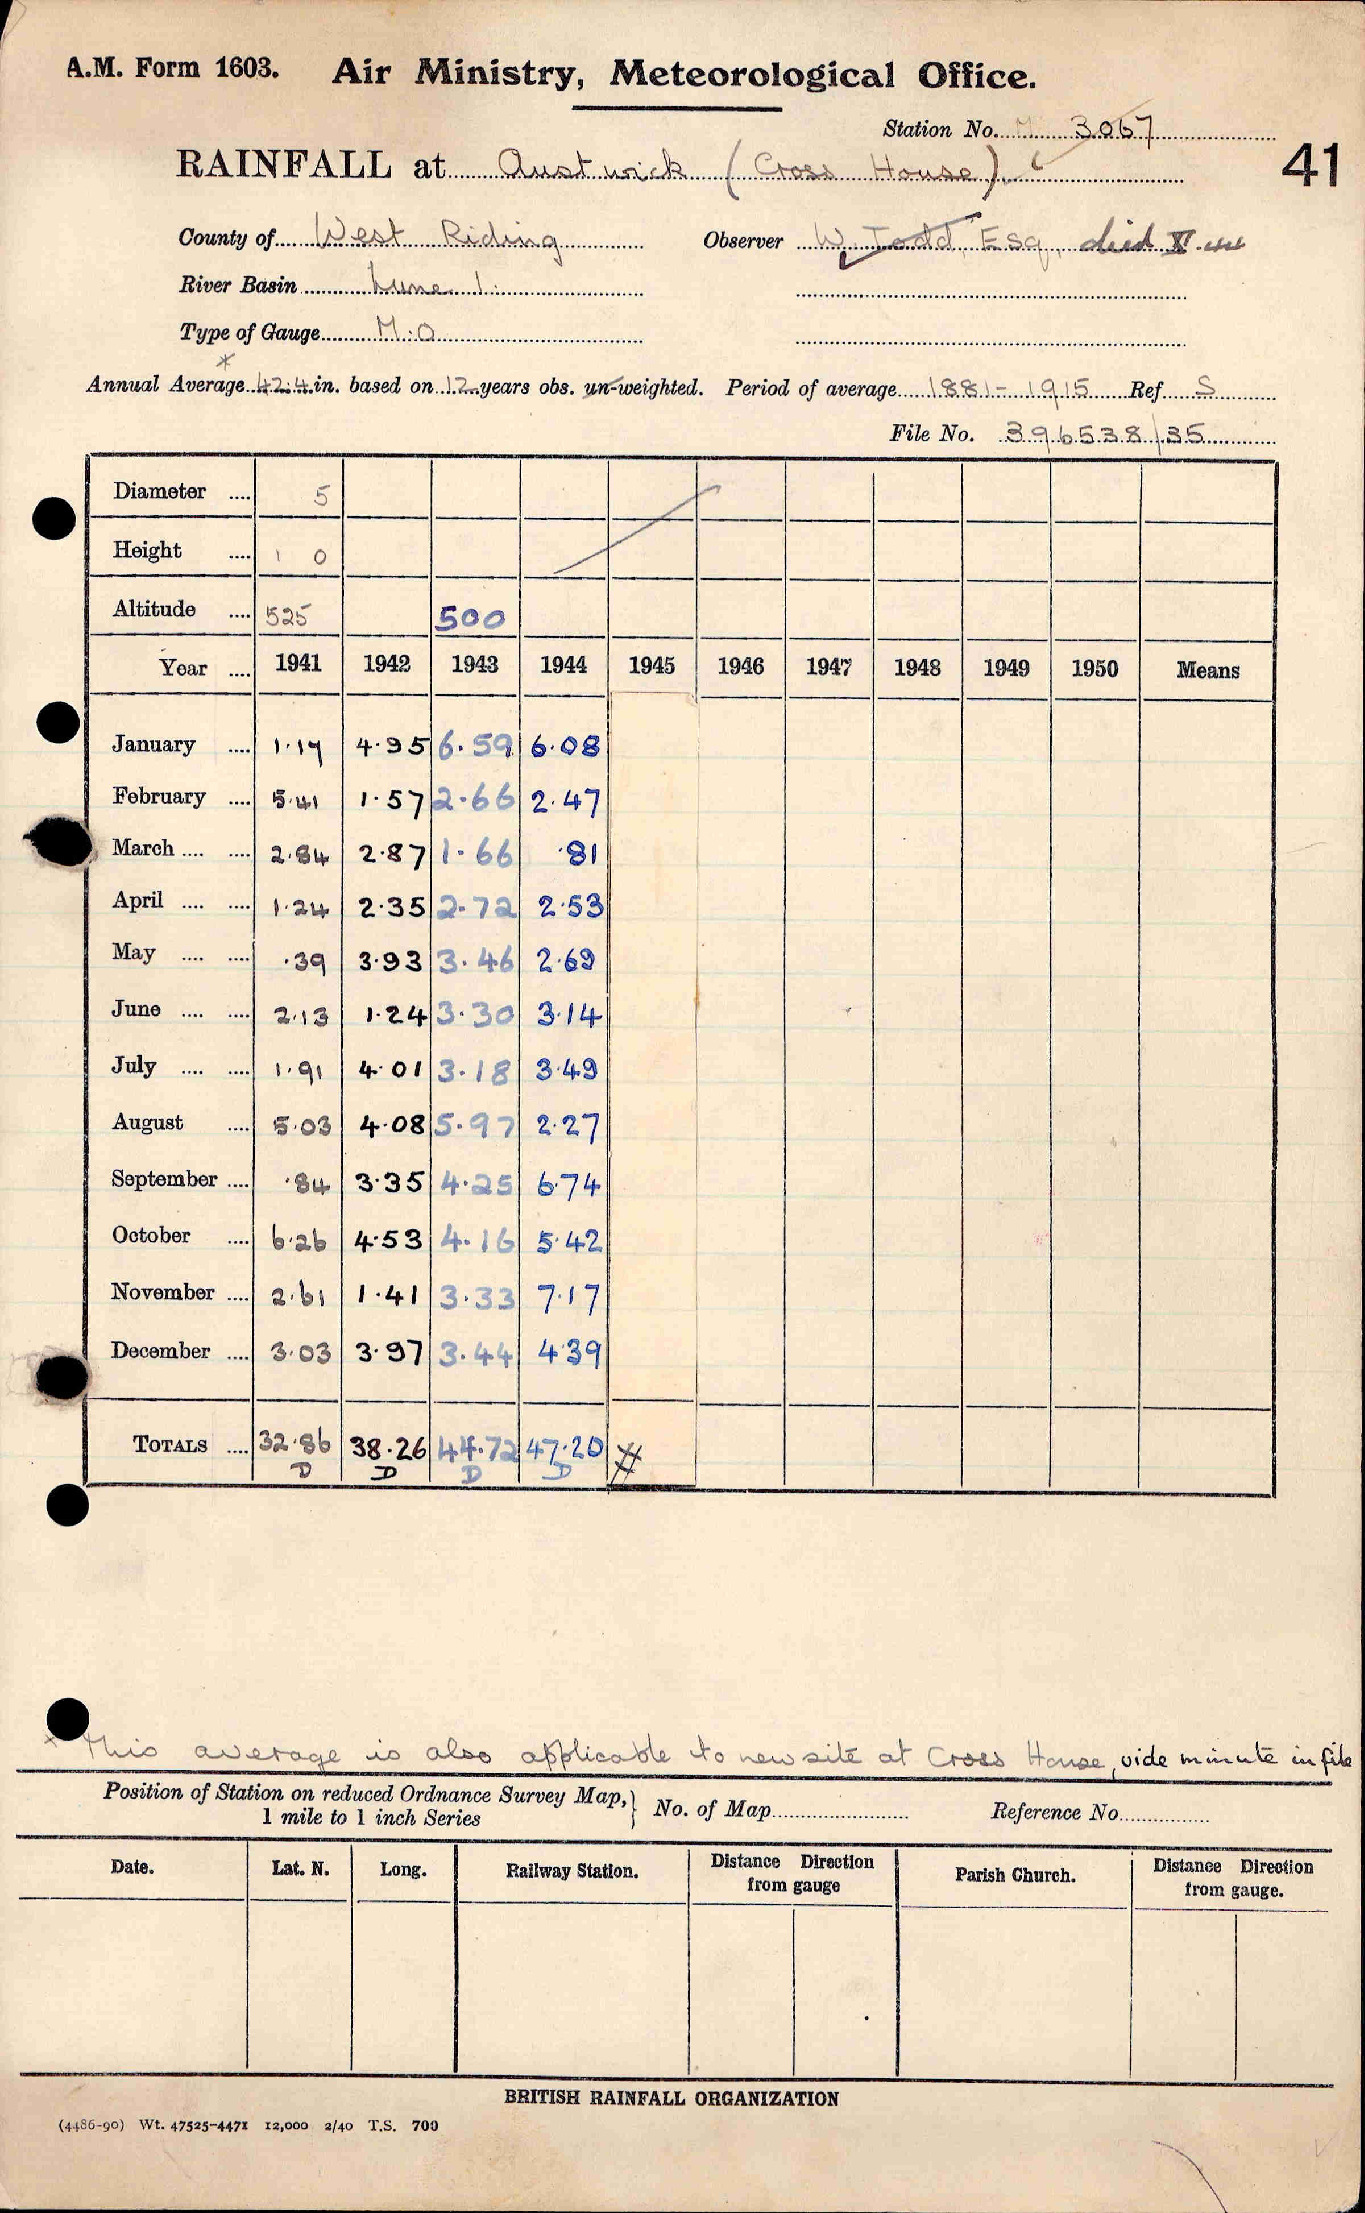 A.M. Form 1603. Air Ministry, Meteorological Office.
Station No. M 3067
RAINFALL at Austwick (Cross House).
41
County of West Riding Observer W. Todd, Esq, died XI.44
River Basin Lune 1.
Type of Gauge M.O
*
Annual Average 42.4 in. based on 12 years obs. un-weighted. Period of average 1881-1915 Ref S
File No. 396538/35
Diameter .... 5
Height .... 1 0
Altitude .... 525 500
Year .... 1941 1942 1943 1944 1945 1946 1947 1948 1949 1950 Means
January .... 1.17 4.95 6.59 6.08
February .... 5.41 1.57 2.66 2.47
March .... .... 2.84 2.87 1.66 .81
April .... .... 1.24 2.35 2.72 2.53
May .... .... .39 3.93 3.46 2.69
June .... .... 2.13 1.24 3.30 3.14
July .... .... 1.91 4.01 3.18 3.49
August .... 5.03 4.08 5.97 2.27
September .... .84 3.35 4.25 6.74
October .... 6.26 4.53 4.16 5.42
November .... 2.61 1.41 3.33 7.17
December .... 3.03 3.97 3.44 4.39
TOTALS .... 32.86 38.26 44.72 47.20 #
D D D D
* This average is also applicable to new site at Cross House, vide minute in file
Position of Station on reduced Ordnance Survey Map, } No. of Map Reference No.
1 mile to 1 inch Series
Date. Lat. N. Long. Railway Station. Distance Direction from gauge Parish Church. Distance Direction from gauge.
BRITISH RAINFALL ORGANIZATION
(4486-90) Wt. 47525-4471 12,000 2/40 T.S. 700